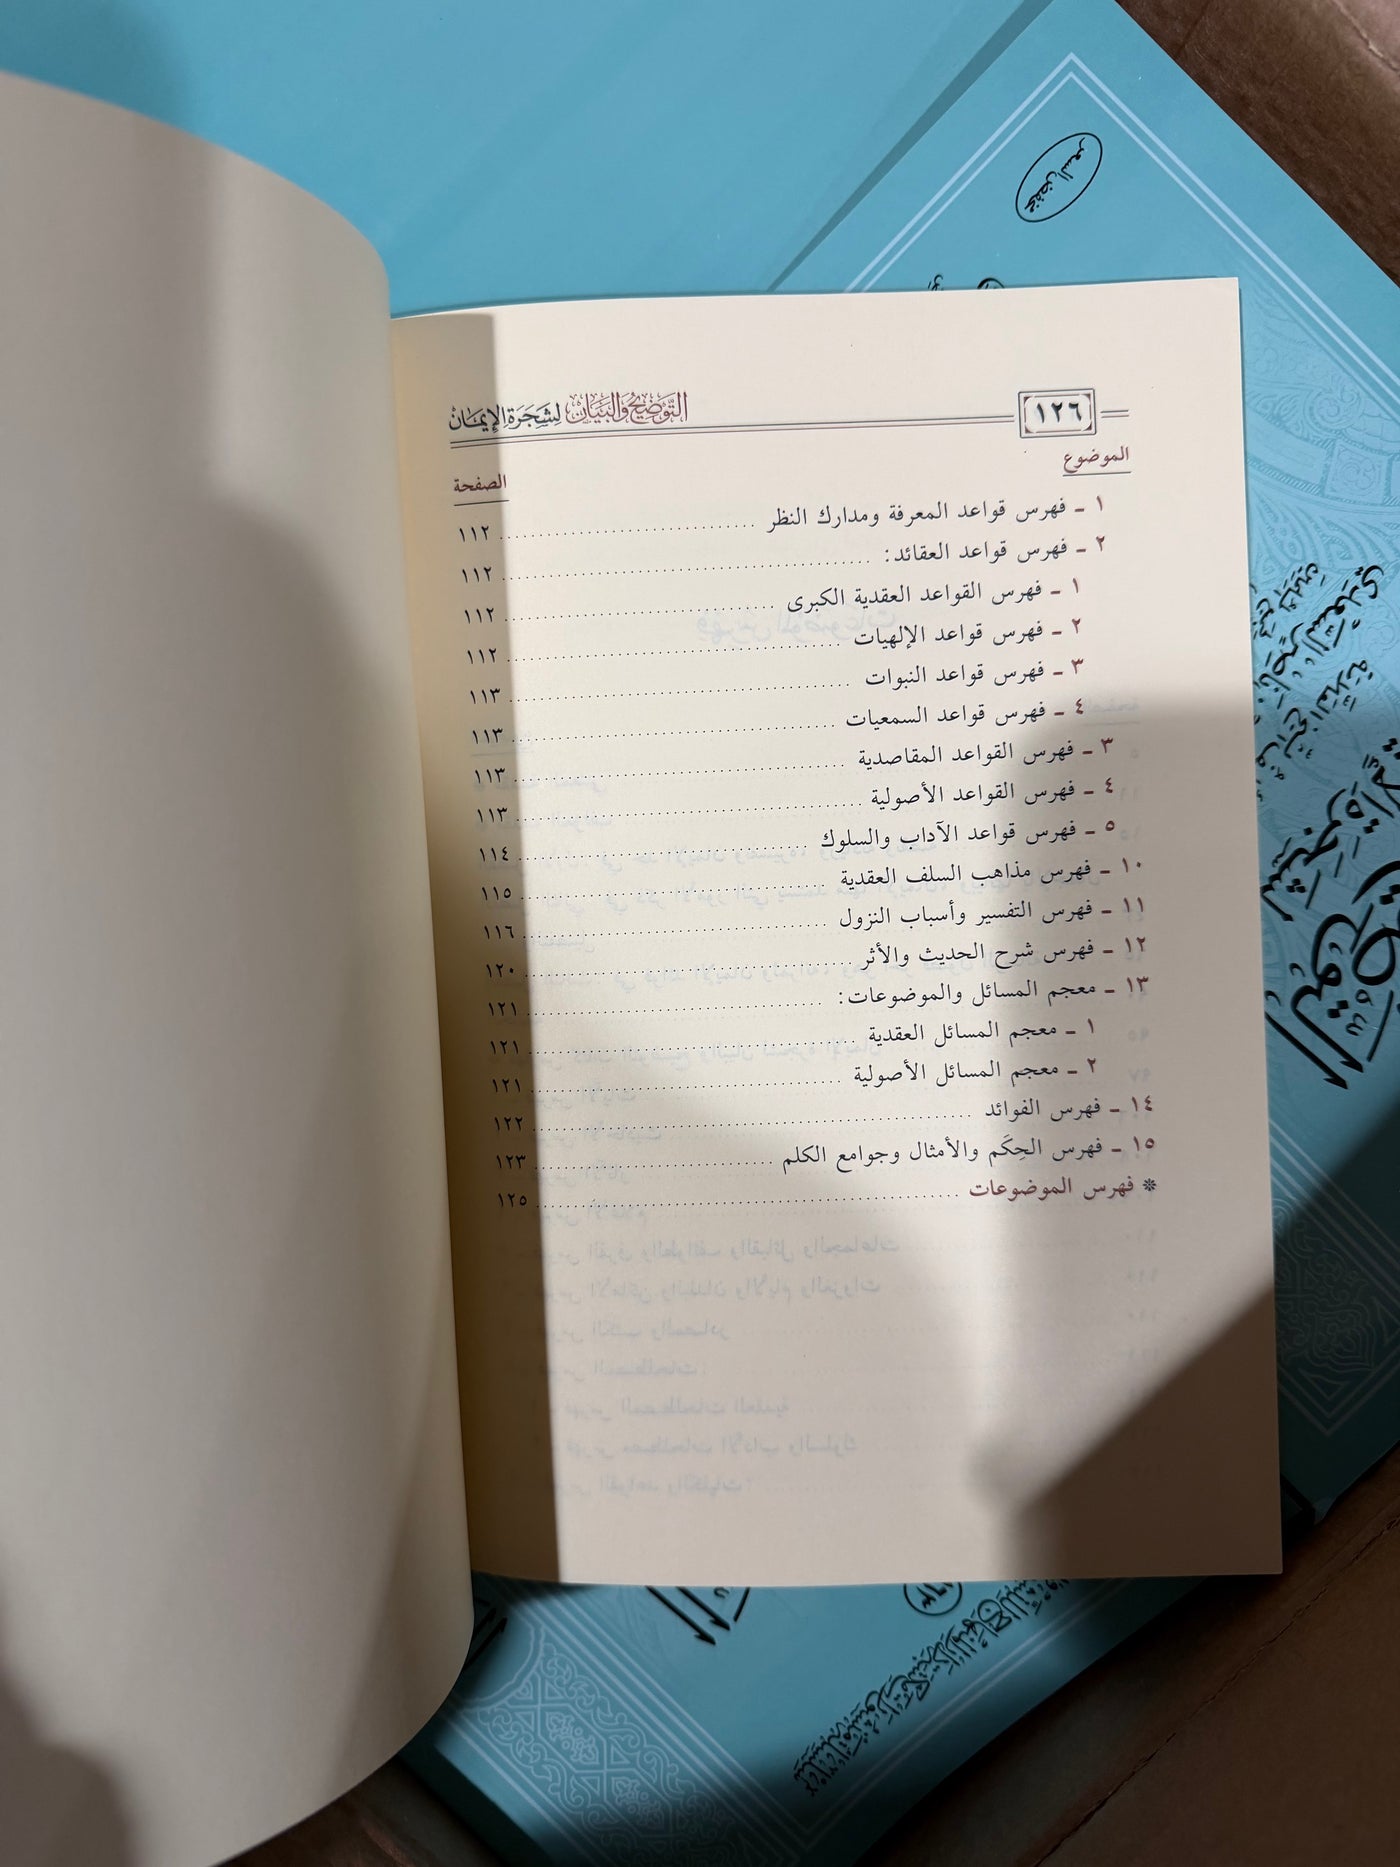 ١٢٦ التَّوضِيحُ وَالبَيَان لِشَجَرَةِ الإِيمَان
الموضوع الصفحة
١ ـ فهرس قواعد المعرفة ومدارك النظر ١١٢
٢ ـ فهرس قواعد العقائد: ١١٢
١ ـ فهرس القواعد العقدية الكبرى ١١٢
٢ ـ فهرس قواعد الإلهيات ١١٢
٣ ـ فهرس قواعد النبوات ١١٣
٤ ـ فهرس قواعد السمعيات ١١٣
٣ ـ فهرس القواعد المقاصدية ١١٣
٤ ـ فهرس القواعد الأصولية ١١٣
٥ ـ فهرس قواعد الآداب والسلوك ١١٤
١٠ ـ فهرس مذاهب السلف العقدية ١١٥
١١ ـ فهرس التفسير وأسباب النزول ١١٦
١٢ ـ فهرس شرح الحديث والأثر ١٢٠
١٣ ـ معجم المسائل والموضوعات: ١٢١
١ ـ معجم المسائل العقدية ١٢١
٢ ـ معجم المسائل الأصولية ١٢١
١٤ ـ فهرس الفوائد ١٢٢
١٥ ـ فهرس الحِكَم والأمثال وجوامع الكلم ١٢٣
❊ فهرس الموضوعات ١٢٥